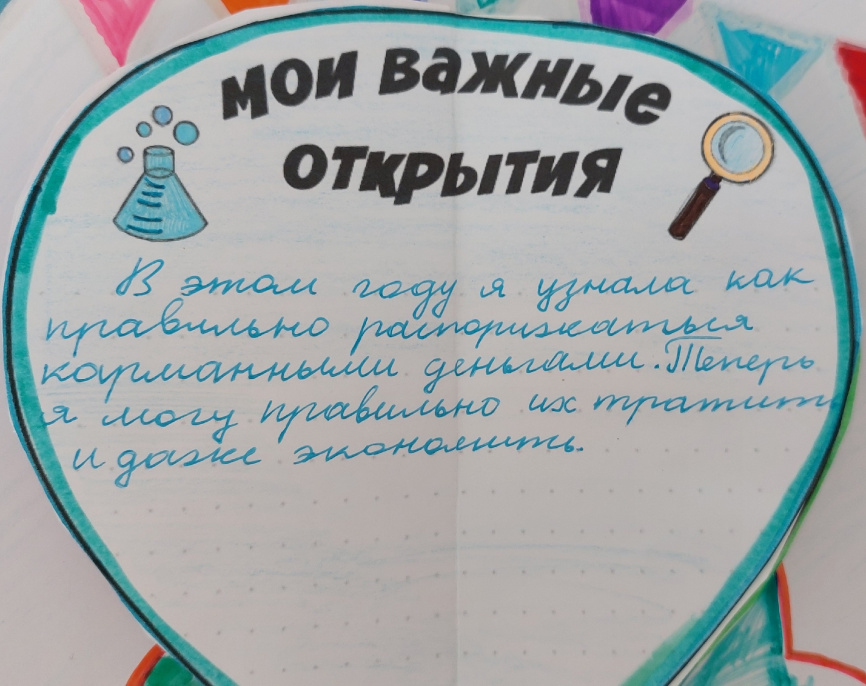 мои важные
открытия
В этом году я узнала как
правильно распоряжаться
карманными деньгами. Теперь
я могу правильно их тратить
и даже экономить.